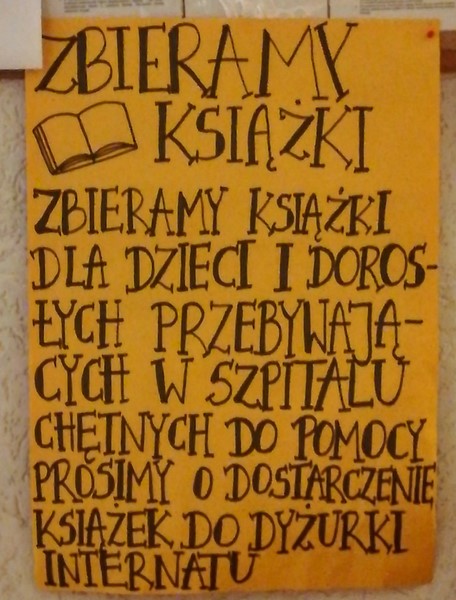 ZBIERAMY
KSIĄŻKI
ZBIERAMY KSIĄŻKI
DLA DZIECI I DOROS-
ŁYCH PRZEBYWAJĄ-
CYCH W SZPITALU
CHĘTNYCH DO POMOCY
PROSIMY O DOSTARCZENIE
KSIĄŻEK DO DYŻURKI
INTERNATU